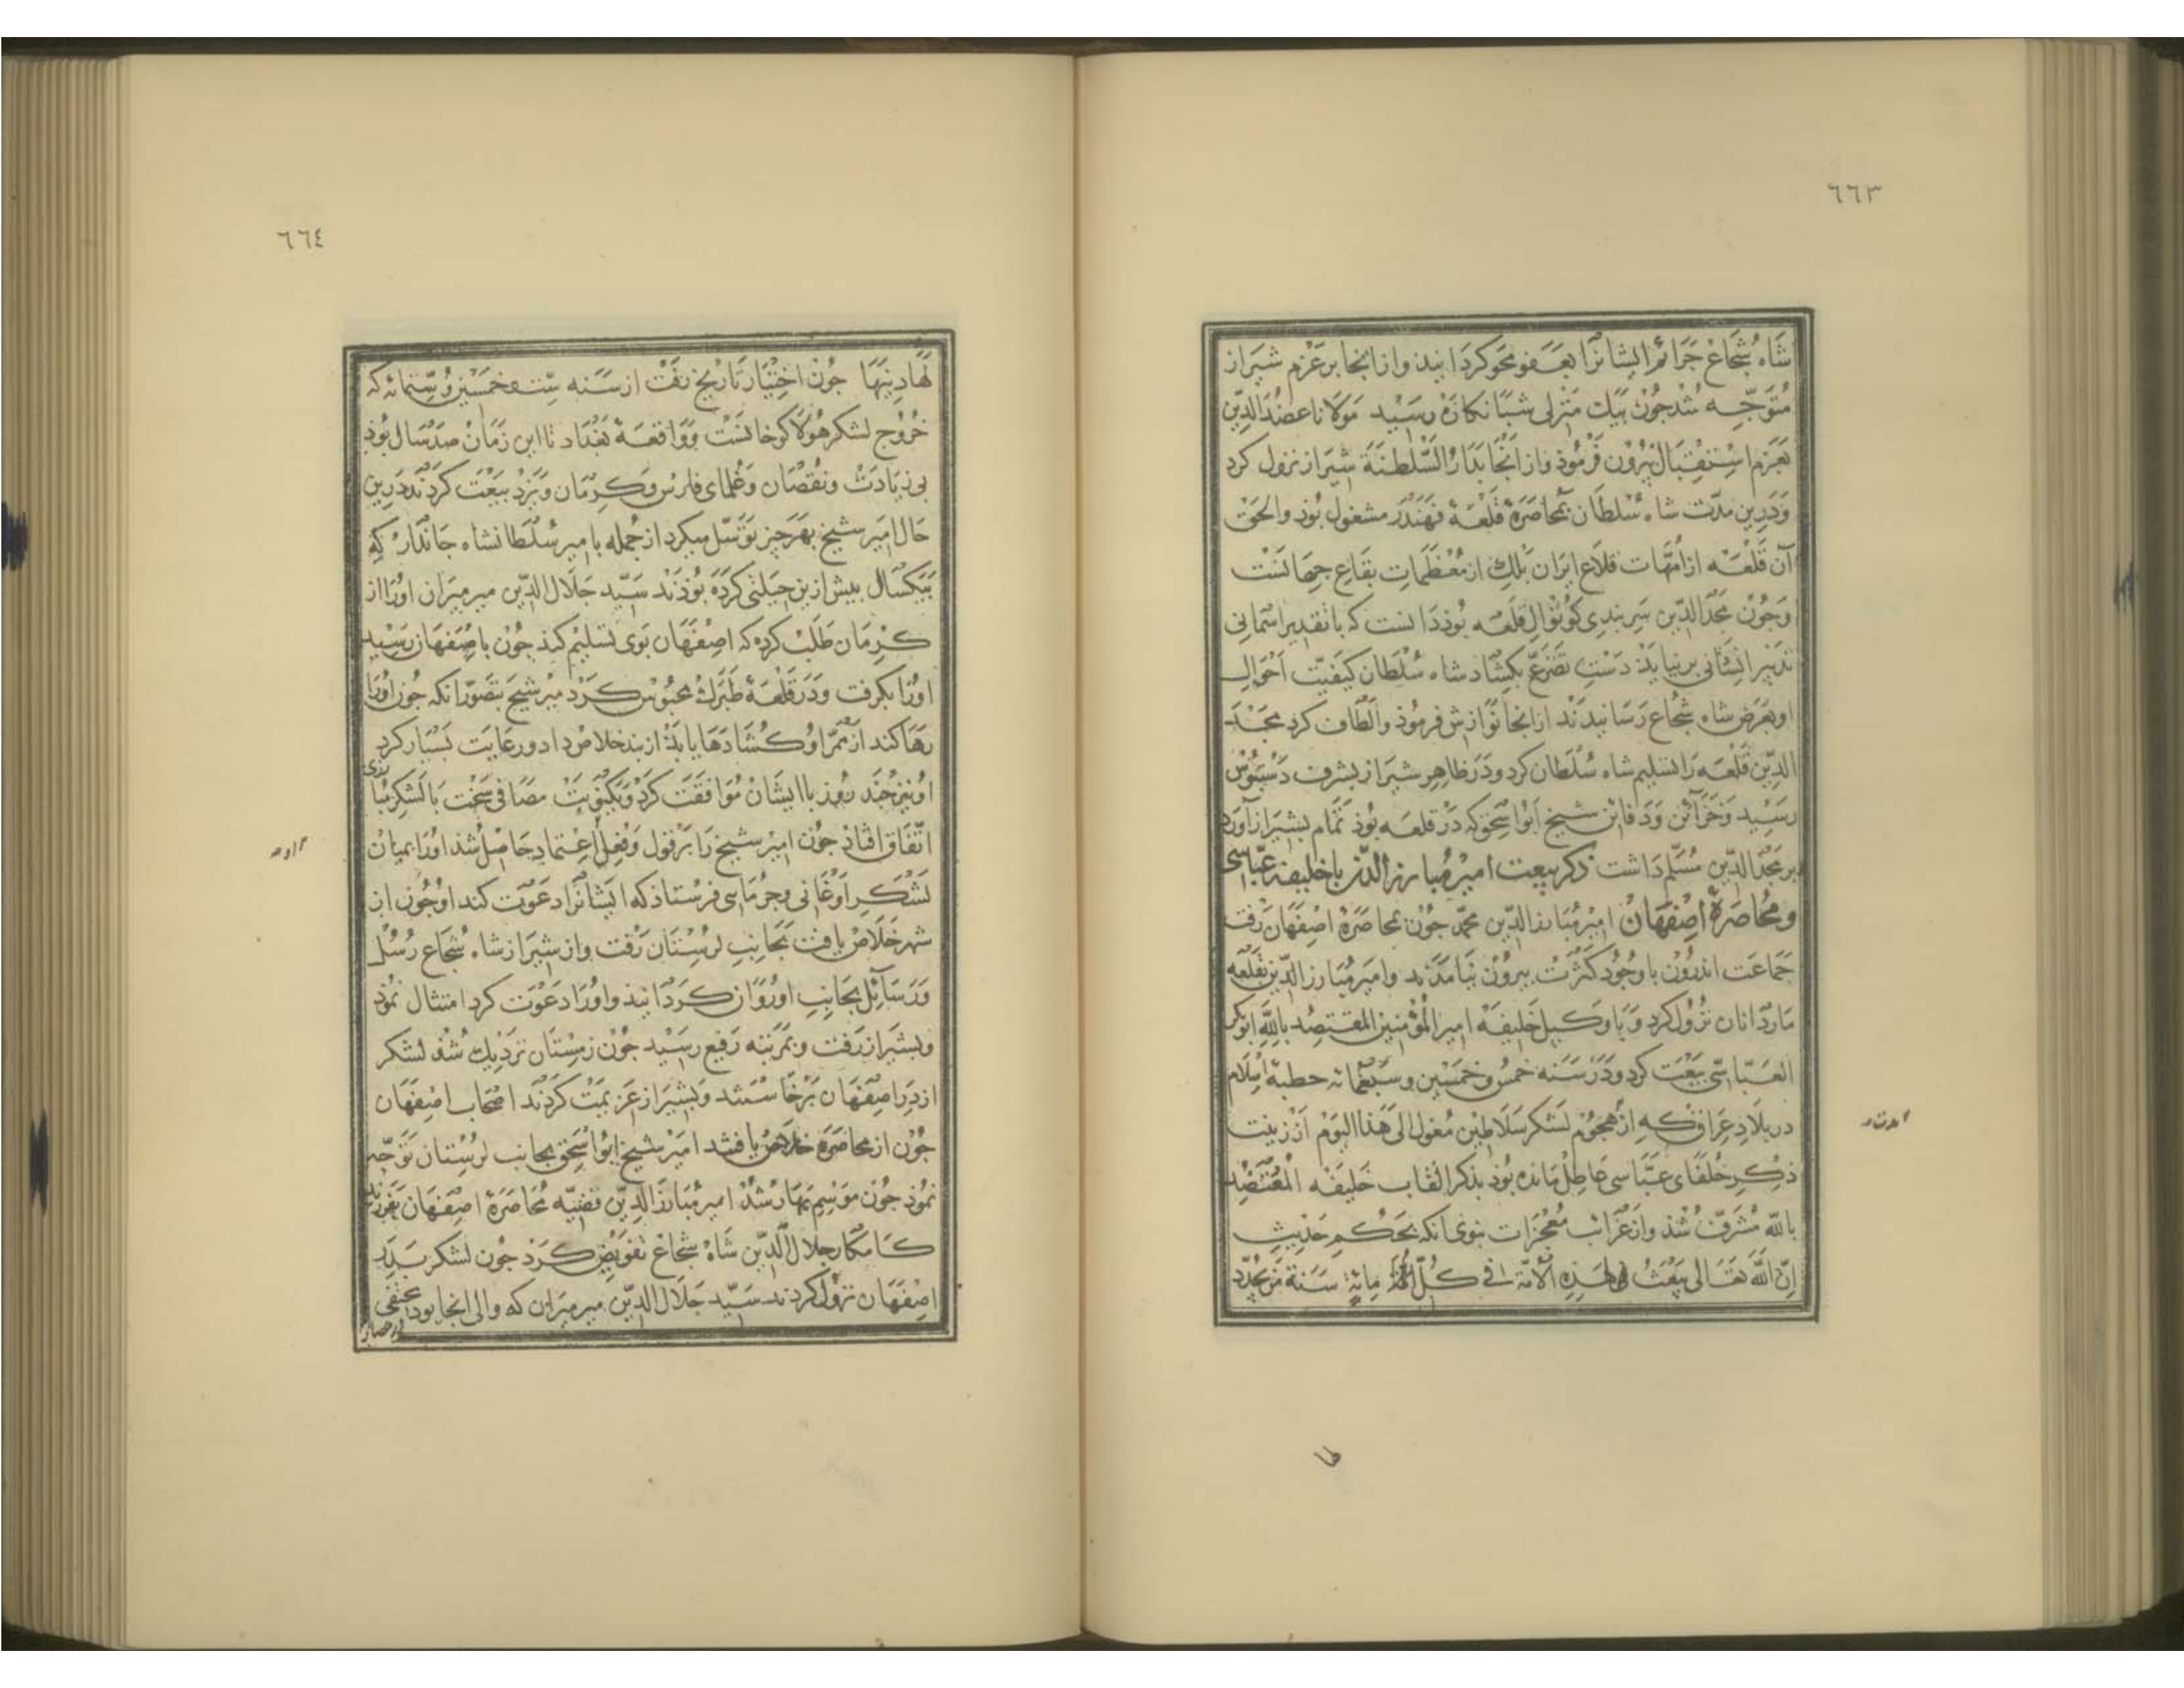 ٦٦٣
شَاه شُجَاع جَرَائم ایشانرا بعَفو محو کردَانید و از انجا بر عَزم شیراز
مُتوَجّه شد جُون بیَك منزلی شبَانکارَه رسَید مَولانا عَضُدالدّین
بَعزم اِستقبَال بیرُون فرمُوذ و از انجا بدَارُ السّلطنَة شیراز نزول کرد
وَدَرین مدّت شاه سُلطان بمُحاصَرهٔ قلعَهٔ قهندر مشغول بُوذ والحَق
آن قلعَه از امّهَات قلاَع ایرَان بَلك از مُعظَمَات بقَاع جهَانست
وَجُون مجدالدّین سَربندی کوُتوَال قلعَه بُوذ دَانست که با تقدیر اسمَانی
تدبیر انسَانی برنیایَذ دَستِ تضَرّع بکشَاد شاه سُلطان کیفیّت احوَال
او بعَرض شاه شجاع رسَانیدند از انجا نوَازش فرمُوذ و الطاف کرد مجد
الدّین قلعَه رَا تسلیم شاه سُلطان کرد و دَر ظاهِر شیراز بشرف دستبُوس
رسَید وَ خزَائن وَ دَفائن شیخ ابوُاسحق که دَر قلعَه بُوذ تمَام بشیرَاز آورد
بر مجدالدّین مُسَلّم دَاشت ذکر بیعت امیر مُبارزالدّین با خلیفهٔ عبّاسی
و مُحاصَرهٔ اصفهَان امیر مُبارزالدّین محمّد جُون بمحاصَرهٔ اصفهَان رَفت
جَمَاعت اندرُون با وجُوُد کثرَت بیرُون نیامَدند و امیر مُبارزالدّین بقلعه
مَاردَانان نزُول کرد و با وَکیل خَلیفَه امیر المُؤمنین المعتضد بِاللّه ابوبکر
العَبّاسی بَیعَت کرد و دَر سَنه خمسٍ و خمسین و سَبعمائه خطبهٔ اسلام
در بلادِ عرَاق که از هجُوم لشکر سَلاطین مُغول الی هَذا الیوم از زینت
ذکر خُلفای عبّاسی عاطل مَانده بُوذ بذکر القاب خَلیفَه المُعتضد
باللّه مُشرّف شُذ و از غرَائب مُعجزات نبوی انکه بحُکم حَدیث
اِنّ اللّهَ تعَالی یَبعَثُ لِهذِهِ الاُمّة فی کُلّ مِائةِ سَنة مَن یُجَدّد
٦٦٤
لهَا دِینهَا جُون اختیَار تاریخ رفت از سَنه سِتّ و خمسین و سِتمائه که
خُروج لشکر هُولاکو خانست وَ وَاقعَهٔ بَغدَاد تا این زمَان صَد سَال بُوذ
بی زیادَت و نُقصَان وَعُلمای فارس و کرمَان و یَزد بیعَت کردند دَرین
حَال امیر شیخ بهَر چیز توَسّل میکرد از جُمله با میر سُلطانشاه جَاندَار که
بیَکسَال بیش ازین حیلتی کردَه بُوذند سَیّد جَلال الدّین میر میرَان اورا از
کرمَان طَلب کرده که اصفهَان بَوی تسلیم کند جُون باصفهَان رسَید
اورا بکرفت و دَر قلعَهٔ طبَرك محبُوس کرد میر شیخ بتصوّر انکه جُون اورا
رهَا کند از ممَرّ او کشادهَا یابَذ از بند خلاص داد و رعایت بسیَار کرد
او نیز جَند رُوز با ایشان مُوافقت کرد و یکنوبَت مصَافی سَخت با لشکر مبا
رزی
اتّفاق افتاذ جُون امیر شیخ رَا بر قول و فعل اعتماد حاصل شذ اورا بمیان
لشکر اوغانی و جرمَایی فرستاذ که ایشانرا دعوَت کند او جُون از
شهر خلاص یافت بجَانب لرستَان رَفت و از شیراز شاه شجاع رُسُل
وَ رسَائل بجَانب او رُوَان کردَانیذ و اورا دعَوت کرد امتثال نمُوذ
و بشیراز رَفت و بمرتبه رفیع رسَید جُون زمستَان نزدیك شُذ لشکر
از دَر اصفهَان برخَاستند و بشیراز عزیمت کردند اصحَاب اصفهَان
جُون از محاصَره خلاص یافتند امیر شیخ ابوُاسحق بجانب لرستان توَجّه
نمُوذ جُون موَسم بهَار شُذ امیر مُبارزالدّین قضیّه مُحَاصَرهٔ اصفهان بفرزند
کامکار جلال الدّین شاه شجاع تفویض کرد جُون لشکر بدَر
اصفهَان نزُول کردند سَیّد جَلال الدّین میر میرَان که والی انجا بود مختفی